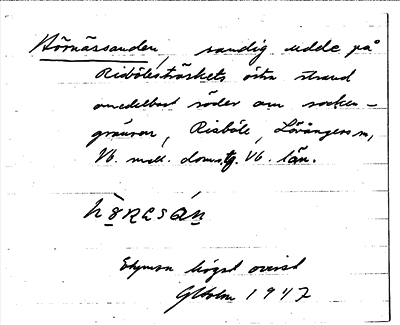 Hörnässanden, sandig udde på
Risböleträskets östra strand
omedelbart söder om socken-
gränsen, Risböle, Lövångers sn,
Vb. mell. doms.tg. Vb. län.
Etymon högst ovisst
GHolm 1947